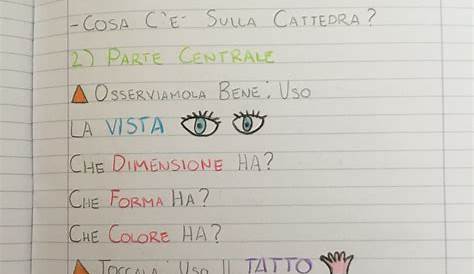 - COSA C'E' SULLA CATTEDRA?
2) PARTE CENTRALE
OSSERVIAMOLA BENE: USO
LA VISTA
CHE DIMENSIONE HA?
CHE FORMA HA?
CHE COLORE HA?
TOCCALA: USO IL TATTO